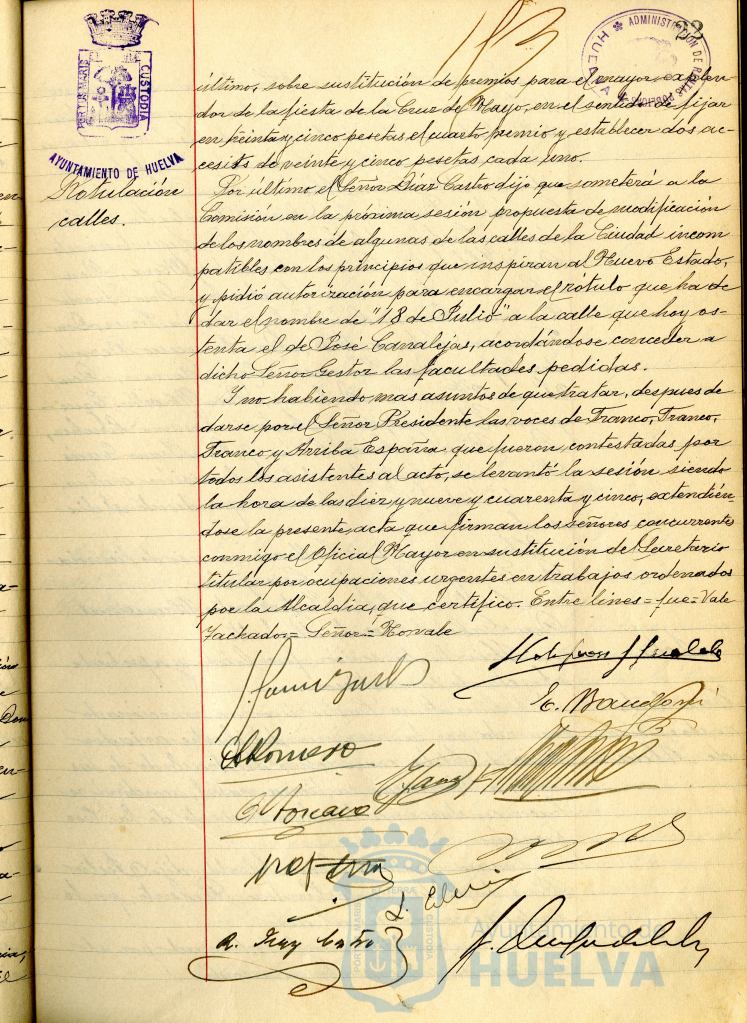 PORTUS MARIS
CUSTODIA
AYUNTAMIENTO DE HUELVA
ADMINISTRACIÓN DE
HUELVA
Rotulación
calles.
último, sobre sustitución de premios para el mayor explen-
dor de la fiesta de la Cruz de Mayo, en el sentido de fijar
en treinta y cinco pesetas el cuarto premio y establecer dos ac-
cesits de veinte y cinco pesetas cada uno.
Por último el Señor Díaz Castro dijo que someterá a la
Comisión en la próxima sesión propuesta de modificación
de los nombres de algunas de las calles de la Ciudad incom
patibles con los principios que inspiran al Nuevo Estado,
y pidió autorización para encargar el rótulo que ha de
dar el nombre de "18 de Julio" a la calle que hoy os-
tenta el de José Canalejas, acordándose conceder a
dicho Señor Gestor las facultades pedidas.
Y no habiendo mas asuntos de que tratar, despues de
darse por el Señor Presidente las voces de Franco, Franco,
Franco y Arriba España que fueron contestadas por
todos los asistentes al acto, se levantó la sesión siendo
la hora de las diez y nueve y cuarenta y cinco, extendién
dose la presente acta que firman los señores concurrentes
conmigo el Oficial Mayor en sustitución del Secretario
titular por ocupaciones urgentes en trabajos ordenados
por la Alcaldía, que certifico. Entre lines = fue = Vale
Tachado = Señor = No vale
E.
Romero
A. Díaz Castro
Ayuntamiento de
HUELVA